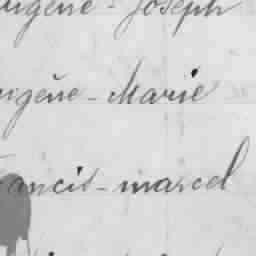 Eugène - Joseph
Eugène - Marie
Francis - marcel